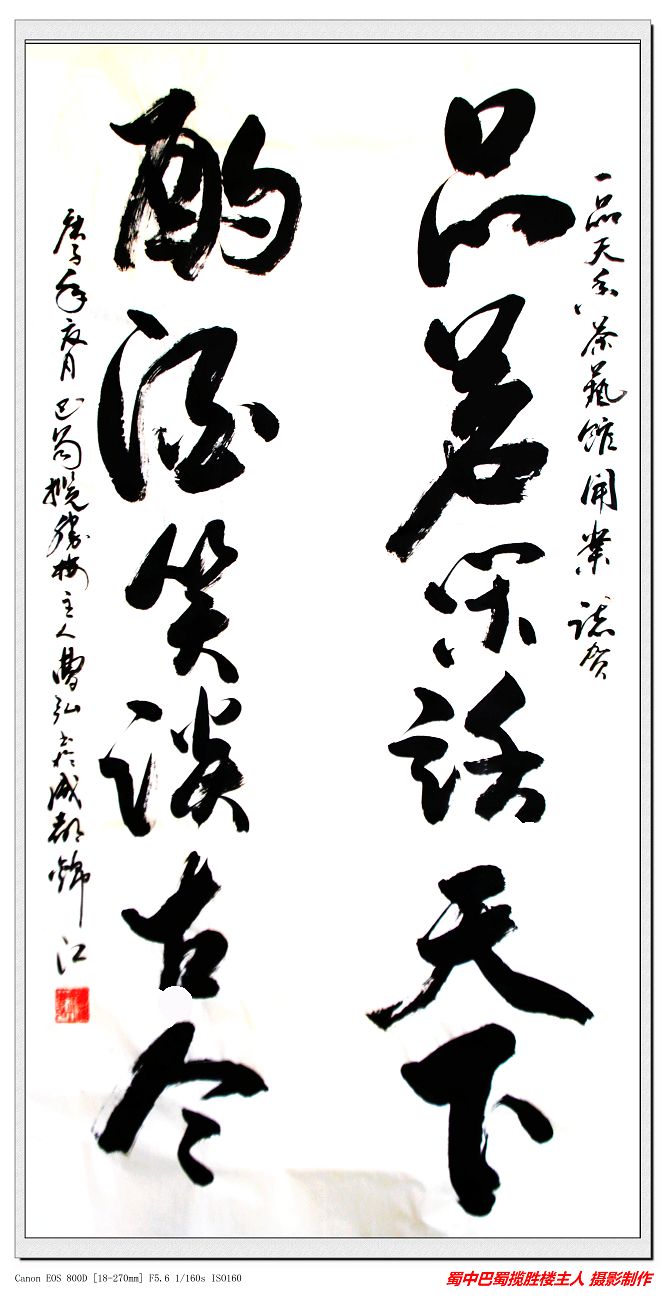 一品天香茶藝館開業誌贺
品茗闲话天下
酌酒笑談古今
庚子年夜月巴蜀揽勝楼主人曹弘書於成都錦江
Canon EOS 800D [18-270mm] F5.6 1/160s ISO160
蜀中巴蜀揽胜楼主人 摄影制作